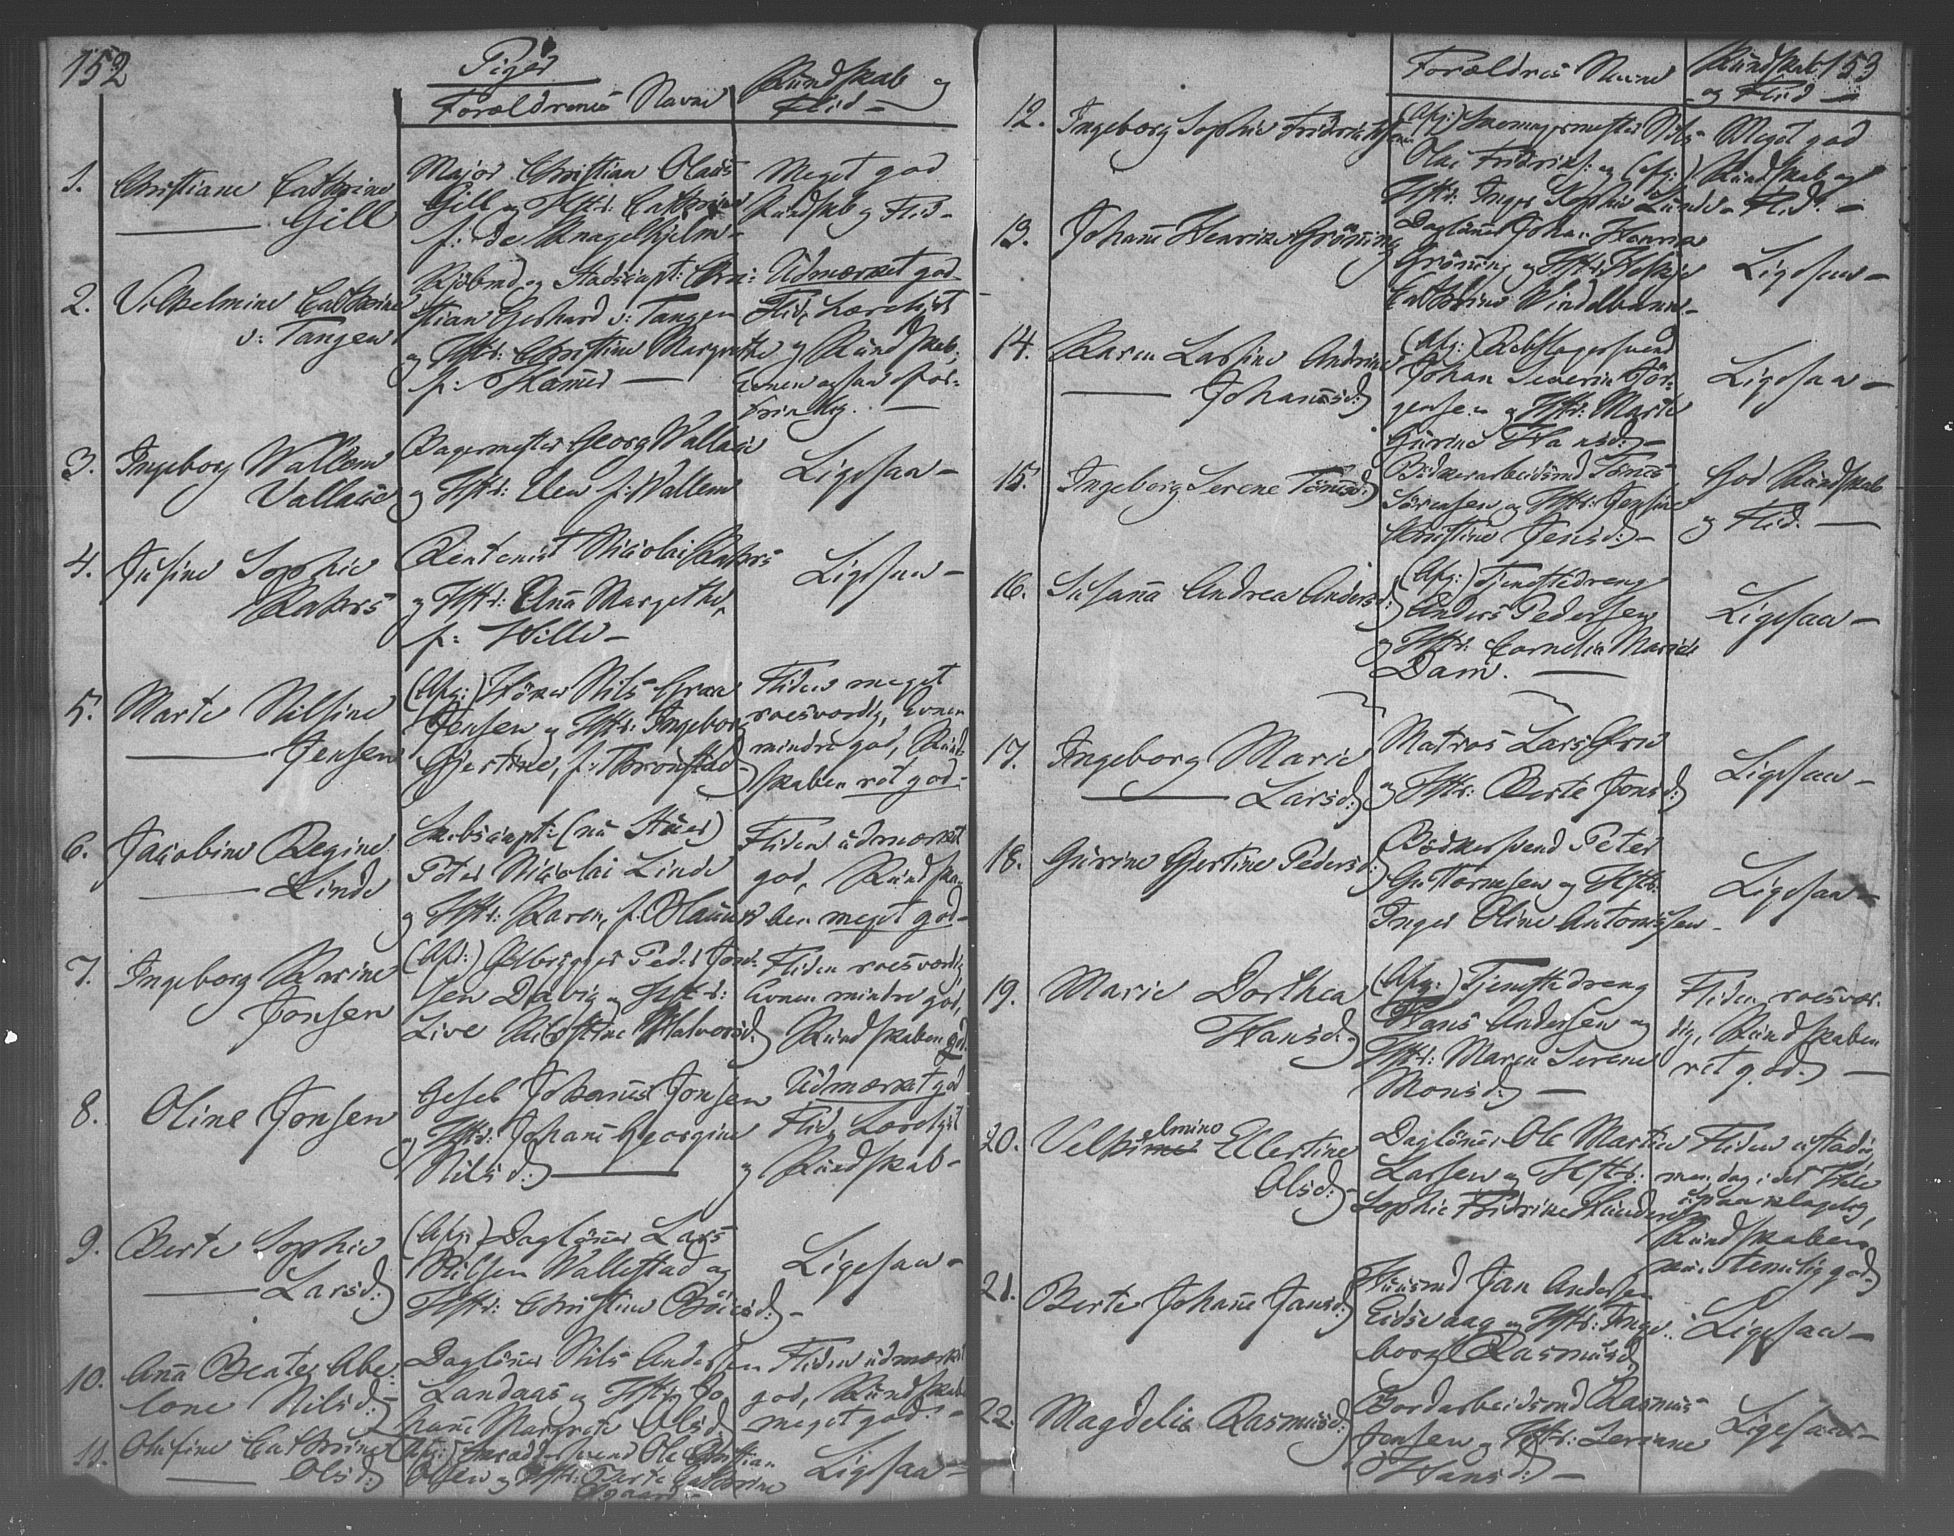 152
Piger
Forældrenes Navne
Kundskab og
Flid -
1. Christiane Cathrine
Gill
Major Christian Olaus
Gill og Hstr: Cathrine
f: de Knagelhjelm -
Meget god
Kundskb og Flid -
2. Vilhelmine Cathrine
v: Tangen
Kjöbmd og Stadscapt: Chri-
stian Gerhard v: Tangen
og Hstr: Christine Margrethe
f:
Udmærket god
Flid, Lærelyst
og Kundskab,
Evnen ogsaa
3. Ingeborg Wallem
Vallasie
Bagermester Georg Wallasie
og Hstr: Elen f: Wallem
Ligesaa -
4. Jusine Sophie
Rahrs
Rentenist Nicolai Rahrs
og Hstr: Anna Margrethe,
f: Wille -
Ligesaa -
5. Marte Nilsine
Jensen
(Afg:) Höker Nils Gran
Jensen og Hstr: Ingeborg
Gjertine, f: Thronstad
Fliden meget
roesværdig, Evnen
mindre god, Kund-
skaben ret god -
6. Jacobine Regine
Linde
Skibscapt: (nu Stuer)
Peter Nicolai Linde
og Hstr: Karen, f:
Fliden udmærket
god, Kundska-
ben meget god -
7. Ingeborg Karine
Jonsen
(Afd:) Ølbrygger Peder Jon-
sen Davig og Hstr:
Live Nilstine Halvorsd:
Fliden roesværdig
Evnen mindre god,
Kundskaben god.
8. Oline Jonsen
Gesel Johannes Jonsen
og Hstr: Johanne Georgine
Nilsd:
Udmærket god
Flid, Lærelyst
og Kundskab -
9. Berte Sophie
Larsd:
(Afg:) Daglönner Lars
Nilsen Wallestad og
Hstr: Christine Böiesd: -
Ligesaa -
10. Anna Beate Abe-
lone Nilsd:
Daglönner Nils Andersen
Landaas og Hstr: Jo-
hanne Margrete Olsd:
Fliden udmærket
god, Kundskab
meget god. -
11. Olufine Cathrine
Olsd:
(Afg:) Skræddersvend Ole Christian
Olsen og Hstr: Berte Cathrine
Ligesaa -
153
Forældres Navne
Kundskab
og Flid -
12. Ingeborg Sophie Fridrichsen
(Afg:) Nils
Olai Fridrichs: og (Afg:)
Hstr: Inger Sophie Lunde -
Meget god
Kundskab og
Flid. -
13. Johanne Henrikke Grönning
Daglönner Johan Henrik
Grönning og Hstr:
Cathrine Windelbann -
Ligesaa -
14. Karen Larsine Andrine
Johannesd:
(Afg:) Rebslagersvend
Johan Severin Jör-
gensen og Hstr: Marte
Gurine Hansd: -
Ligesaa -
15. Ingeborg Serene Tönnesd:
Bödkerarbeidsmd Tönnes
Sörensen og Hstr: Jensine
Christine Jensd: -
God Kundskab
og Flid. -
16. Susanna Andrea Andersd:
(Afg:) Tjenestedreng
Anders Pedersen
og Hstr: Cornelia Marie
Dam. -
Ligesaa -
17. Ingeborg Marie
Larsd:
Matros Lars
og Hstr: Berte Jonsd:
Ligesaa -
18. Gurine Gjertine Pedersd:
Bödkersvend Peter
Guttormsen og Hstr:
Inger Oline Antonissen -
Ligesaa -
19. Marie Dorthea
Hansd:
(Afg:) Tjenestedreng
Hans Andersen og
Hstr: Maren Serene
Monsd: -
Fliden roesvær-
dig, Kundskaben
ret god. -
20. Velhelmine Ellertine
Olsd:
Daglönner Ole Martin
Larsen og Hstr:
Sophie Fridrikke
Fliden ustadig
men dog i det Hele
upaaklagelig,
Kundskaben
temelig god.
21. Berte Johanne Jansd:
Huusmd Jan Andersen
Eidsvaag og Hstr: Inge-
borg Rasmusd:
Ligesaa -
22. Magdelia Rasmusd:
Jordarbeidsmd Rasmus
Jensen og Hstr: Serianne
Hansd: -
Ligesaa -